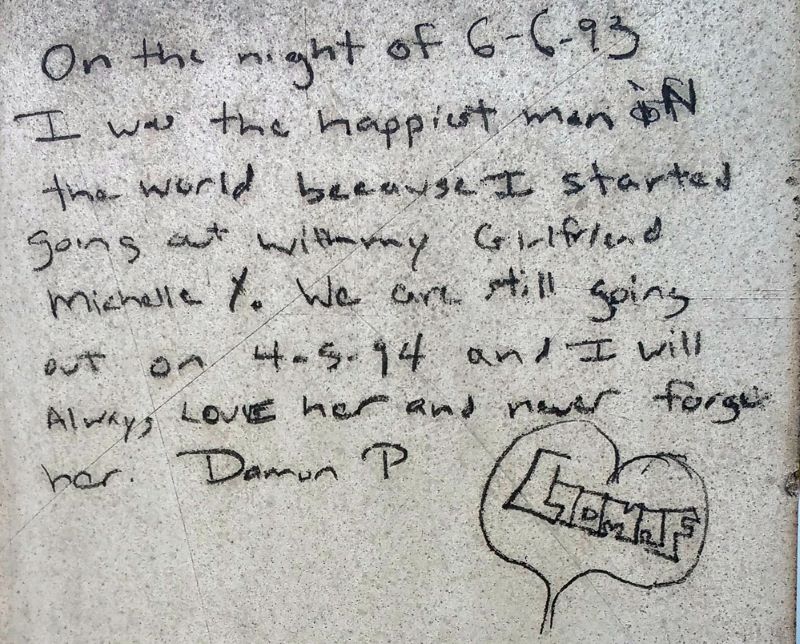 On the night of 6-6-93
I was the happiest man iN
the world because I started
going out with my Girlfriend
Michelle Y. We are still going
out on 4-5-94 and I will
Always LOVE her and never forge
her. Damon P